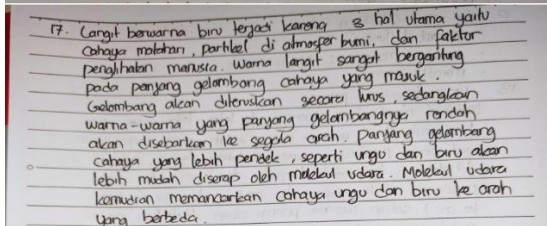 17. Langit berwarna biru terjadi karena 3 hal utama yaitu
cahaya matahari, partikel di atmosfer bumi, dan faktor
penglihatan manusia. Warna langit sangat bergantung
pada panjang gelombang cahaya yang masuk.
Gelombang akan diteruskan secara lurus, sedangkan
warna-warna yang panjang gelombangnya rendah
akan disebarkan ke segala arah. Panjang gelombang
cahaya yang lebih pendek, seperti ungu dan biru akan
lebih mudah diserap oleh molekul udara. Molekul udara
kemudian memancarkan cahaya ungu dan biru ke arah
yang berbeda.